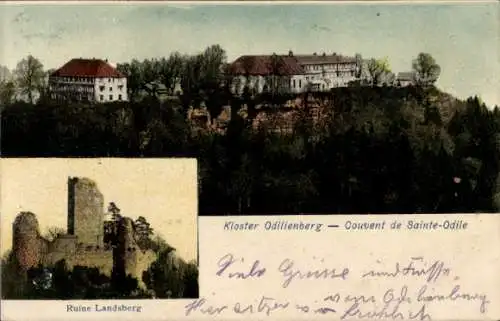 Kloster Odilienberg — Couvent de Sainte-Odile
Ruine Landsberg
Viele Grüsse und Küsse
vom Odilienberg
Hier sitzen wir fröhlich